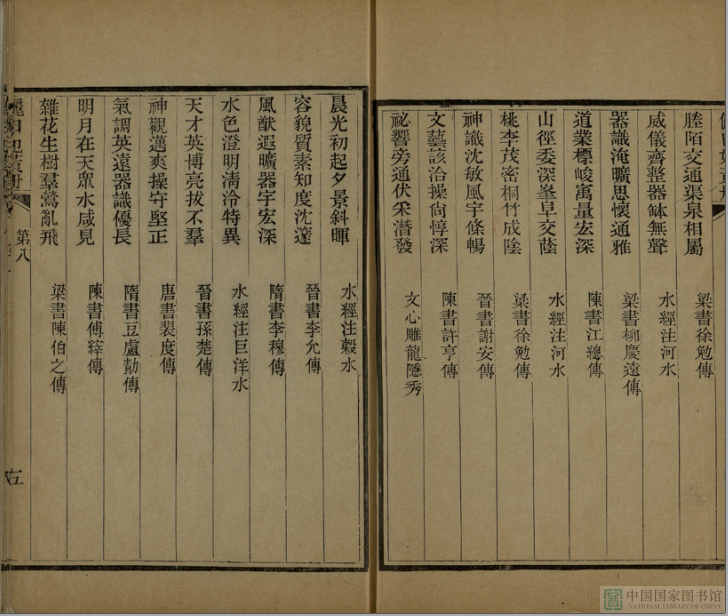 塍陌交通渠泉相屬 梁書徐勉傳
威儀齊整器鉢無聲 水經注河水
器識淹曠思懷通雅 梁書柳慶遠傳
道業標峻寓量宏深 陳書江總傳
山徑委深峯阜交蔭 水經注河水
桃李茂密桐竹成陰 梁書徐勉傳
神識沈敏風宇條暢 晉書謝安傳
文藝該洽操尙惇深 陳書許亨傳
祕響旁通伏采潛發 文心雕龍隱秀
晨光初起夕景斜暉 水經注穀水
容貌質素知度沈邃 晉書李允傳
風猷遐曠器宇宏深 隋書李穆傳
水色澄明淸泠特異 水經注巨洋水
天才英博亮拔不羣 晉書孫楚傳
神觀邁爽操守堅正 唐書裴度傳
氣調英遠器識優長 隋書豆盧勣傳
明月在天眾水咸見 陳書傅縡傳
雜花生樹羣鶯亂飛 梁書陳伯之傳
第八
五
中国国家图书馆
NATIONAL LIBRARY OF CHINA